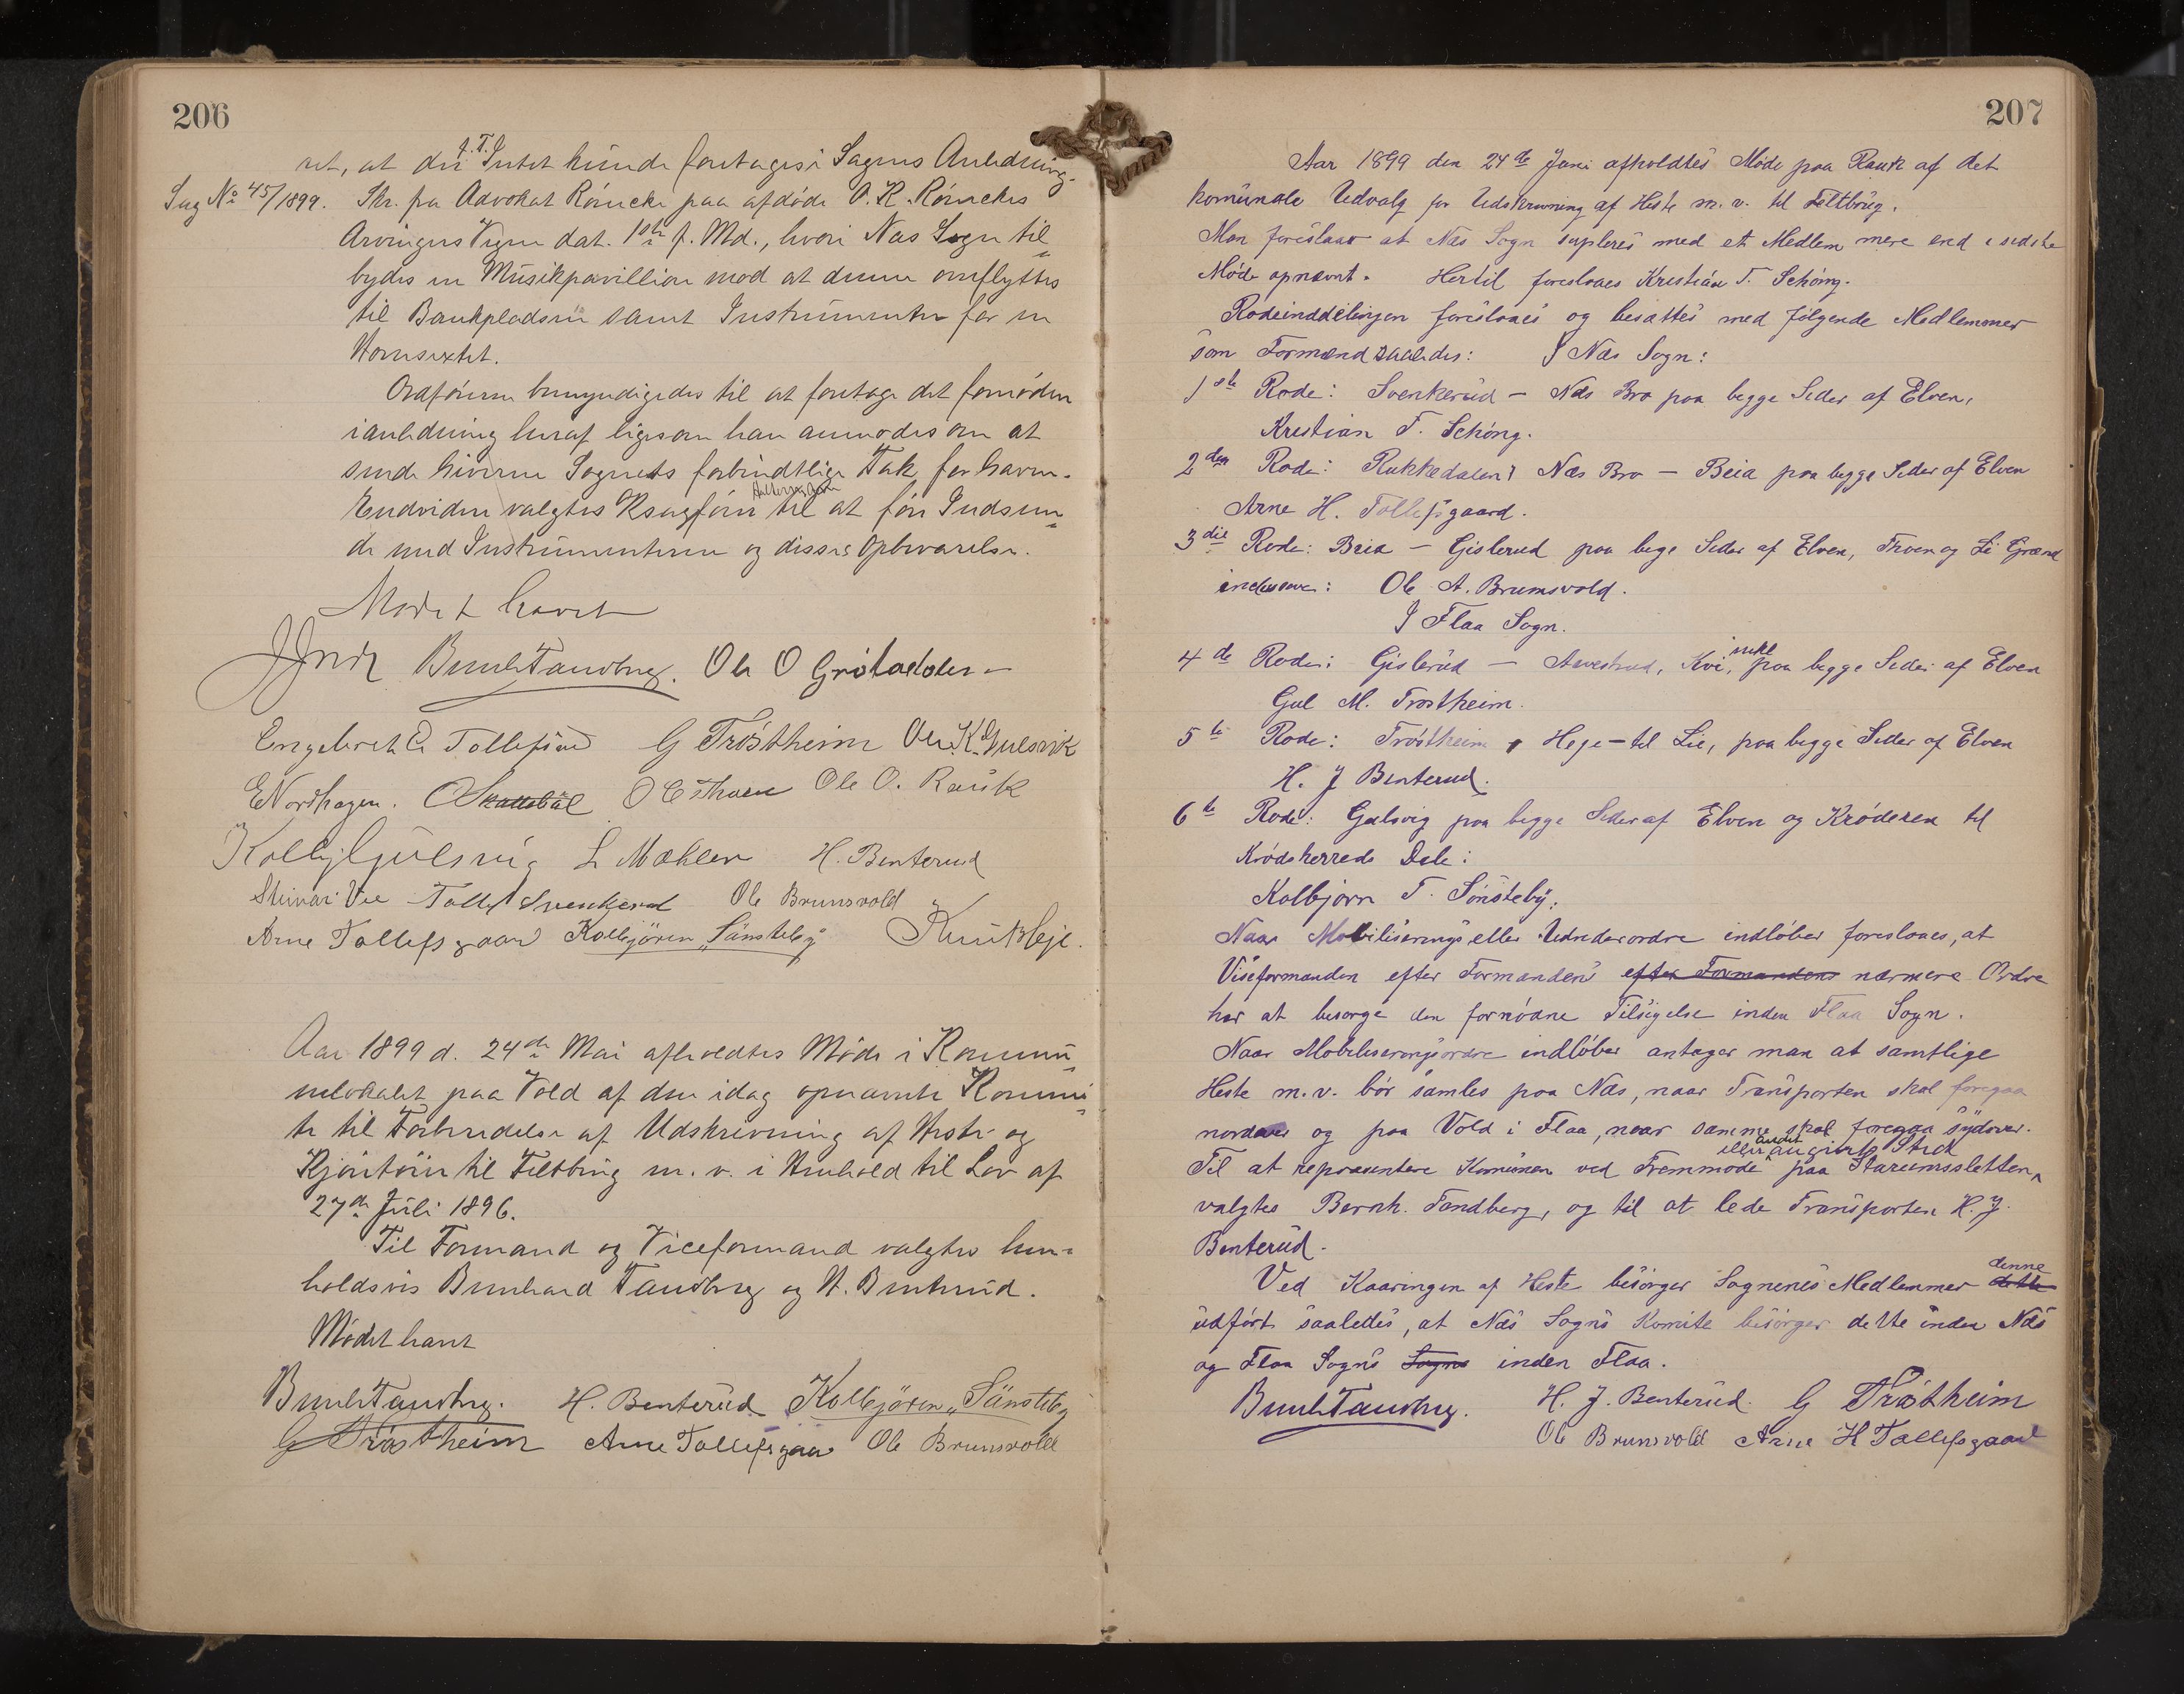 206
ret, at der f. T. Intet kunde foretages i Sagens Anledning.
Sag No 45/1899. Skr. fra Advokat Rømcke paa afdøde O. K. Rømckes
Arvingers Vegne dat. 1ste f. Md., hvori Nas Sogn til=
bydes en Musikpavillion mod at denne omflyttes
til Bankpladsen samt Instrumenter for en
Hornsextet.
Ordføreren bemyndigedes til at foretage det fornødne
i anledning heraf ligesom han anmodes om at
sende Giverne Sognets forbindtlige Tak for Gaven.
Endvidere valgtes til at føre Indseen=
de med Instrumenterne og disses Opbevarelse.
Mødet hævet
Bernh Tandberg. Ole O Grøtadalen
Engebret E Tollefsrud G Trøstheim Ole K. Gulsvik
E Nordhagen. O Skattebøl O E Thoen Ole O. Rauk
Kolbj Gulsvig L Mæhlen H. Benterud
Steinar Vee Tollef Svenkerud Ole Brunsvold
Arne Tollefsgaard Kolbjøren „Sønsteby Knut Sleje.
Aar 1899 d. 24de Mai afholdtes Møde i Kommu=
nelokalet paa Vold af den idag opnævnte Kommi=
te til Forberedelse af Udskrivning af Heste og
Kjøretøier til Feltbrug m. v. i Henhold til Lov af
27de Juli 1896.
Til Formand og Viceformand valgtes hen=
holdsvis Bernhard Tandberg og H. Benterud.
Mødet hævet
Bernh Tandberg. H. Benterud Kolbjøren „Sønsteby
G Trøstheim Arne Tollefsgaard Ole Brunsvold
207
Aar 1899 den 24de Juni afholdtes Møde paa Rauk af det
komunale Udvalg for Udskrivning af Heste m. v. til Feltbrug.
Man foreslaar at Næs Sogn supleres med et Medlem mere end i sidste
Møde opnævnt. Hertil foreslaaes Kristian T. Schøng.
Rodeinddelingen foreslaaes og besattes med følgende Medlemmer
som Formænd saaledes: I Næs Sogn:
1ste Rode: Svenkerud – Næs Bro paa begge Sider af Elven,
Kristian T. Schøng.
2den Rode: Rukkedalen, Næs Bro – Beia paa begge Sider af Elven
Arne H. Tollefsgaard.
3die Rode: Beia – Gislerud paa bege Sider af Elven, Thoen og Li Grænd
indusive: Ole A. Brunsvold.
I Flaa Sogn.
4de Rode: Gislerud – Aavestrud, Kvi, inkl paa begge Sider af Elven
Gul M. Trøstheim.
5te Rode: Trøstheim, Heje – til Lie, paa begge Sider af Elven
H. J Benterud.
6te Rode: Gulsvig paa begge Sider af Elven og Krøderen til
Krødsherreds Dele:
Kolbjørn T. Sønsteby.
Naar Mobiliserings eller Udrederordre indløber foreslaaes, at
Viseformanden efter Formandens efter Formandens nærmere Ordre
har at besørge den fornødne Tilsigelse inden Flaa Sogn.
Naar Mobiliseringsordre indløber antager man at samtlige
Heste m. v. bør samles paa Næs, naar Transporten skal foregaa
nordover og paa Vold i Flaa, naar samme skal foregaa sydover.
eller andet angivet Sted
Til at repræsentere Komunen ved Fremmøde paa Starumssletten
valgtes Bernh. Tandberg, og til at lede Transporten H. J.
Benterud.
Ved Kaaringen af Heste besørger Sognenes Medlemmer dette denne
udført saaledes, at Næs Sogns Komite besørger dette inden Næs
og Flaa Sogns Sogns inden Flaa.
Bernh Tandberg. H. J. Benterud. G Trøstheim
Ole Brunsvold Arne H Tollefsgaard